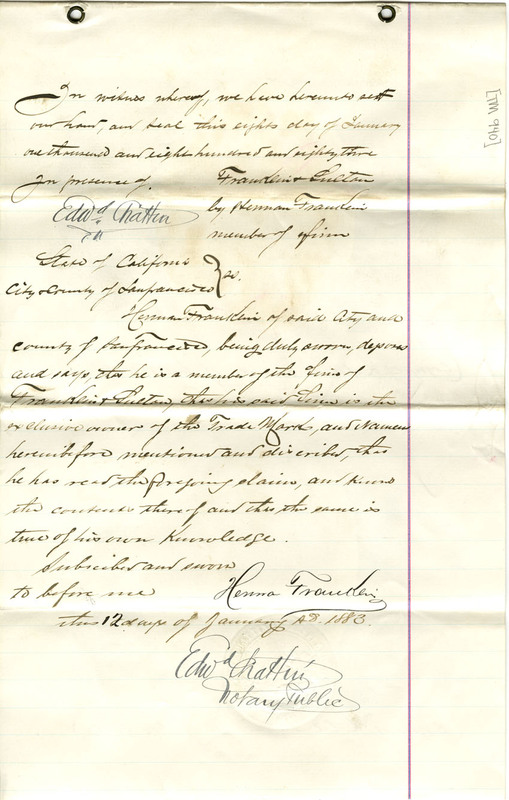 In witness whereof, we have hereunto set
our hand, and seal this eights day of January
one thousand and eight hundred and eighty three
In presence of. Franklin & Sulton
Edwd Chattin by Herman Franklin
member of firm
State of California
City & County of Sanfrancisco } ss.
Herman Franklin of said City and
county of Sanfrancisco, being duly sworn, depose
and says, that he is a member of the firm of
Franklin & Sulton, that his said firm is the
exclusive owner of the Trade Mark, and Names
hereinbefore mentioned and discribed, that
he has read the foregoing claim, and knows
the contents thereof and that the same is
true of his own Knowledge.
Subscribed and sworn
to before me Herman Franklin
this 12 days of January AD. 1883.
Edwd Chattin
Notary Public
[TM 940]